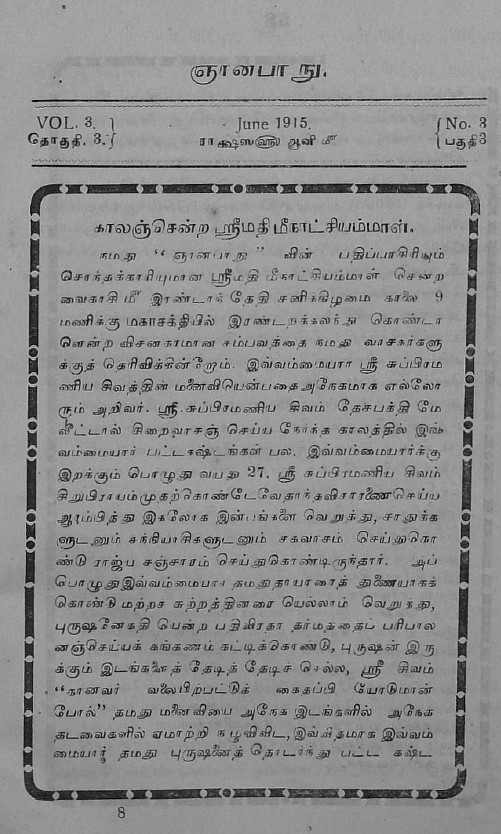 ஞானபாநு.
VOL. 3. June 1915. No. 3
தொகுதி. 3. ராக்ஷஸஹு ஆனி மீ பகுதி 3
காலஞ்சென்ற ஸ்ரீமதி மீநாட்சியம்மாள்.
நமது “ ஞானபாநு ” வின் பதிப்பாசிரியும்
சொந்தக்காரியுமான ஸ்ரீமதி மீநாட்சியம்மாள் சென்ற
வைகாசி மீ இரண்டாந் தேதி சனிக்கிழமை காலை 9
மணிக்கு மகாசக்தியில் இரண்டறக்கலந்து கொண்டா
ளென்ற விசனகரமான சம்பவத்தை நமது வாசகர்களு
க்குத் தெரிவிக்கின்றேம். இவ்வம்மையார் ஸ்ரீ சுப்பிரம
ணிய சிவத்தின் மனைவியென்பதை அநேகமாக எல்லோ
ரும் அறிவர். ஸ்ரீ சுப்பிரமணிய சிவம் தேசபக்தி மே
லீட்டால் சிறைவாசஞ் செய்ய நேர்ந்த காலத்தில் இவ்
வம்மையார் பட்டகஷ்டங்கள் பல. இவ்வம்மையார்க்கு
இறக்கும் பொழுது வயது 27. ஸ்ரீ சுப்பிரமணிய சிவம்
சிறுபிராயம்முதற்கொண்டேவேதாந்தவிசாரணைசெய்ய
ஆரம்பித்து இகலோக இன்பங்களை வெறுத்து, சாதுக்க
ளுடனும் சந்நியாசிகளுடனும் சகவாசம் செய்துகொ
ண்டு ராஜ்ய சஞ்சாரம் செய்துகொண்டிருந்தார். அப்
பொழுதுஇவ்வம்மையார் தமதுதாயாரைத் துணையாகக்
கொண்டு மற்றச் சுற்றத்தினரை யெல்லாம் வெறுத்து,
புருஷனேகதி யென்ற பதிவிரதா தர்மத்தைப் பரிபால
னஞ்செய்யக் கங்கணம் கட்டிக்கொண்டு, புருஷன் இரு
க்கும் இடங்களைத் தேடித் தேடிச் செல்ல, ஸ்ரீ சிவம்
“கானவர் வலையிற்பட்டுக் கைதப்பி யோடுமான்
போல்” தமது மனைவியை அநேக இடங்களில் அநேக
தடவைகளில் ஏமாற்றி நழுவிவிட, இவ்விதமாக இவ்வம்
மையார் தமது புருஷனைத் தொடர்ந்து பட்ட கஷ்ட
8